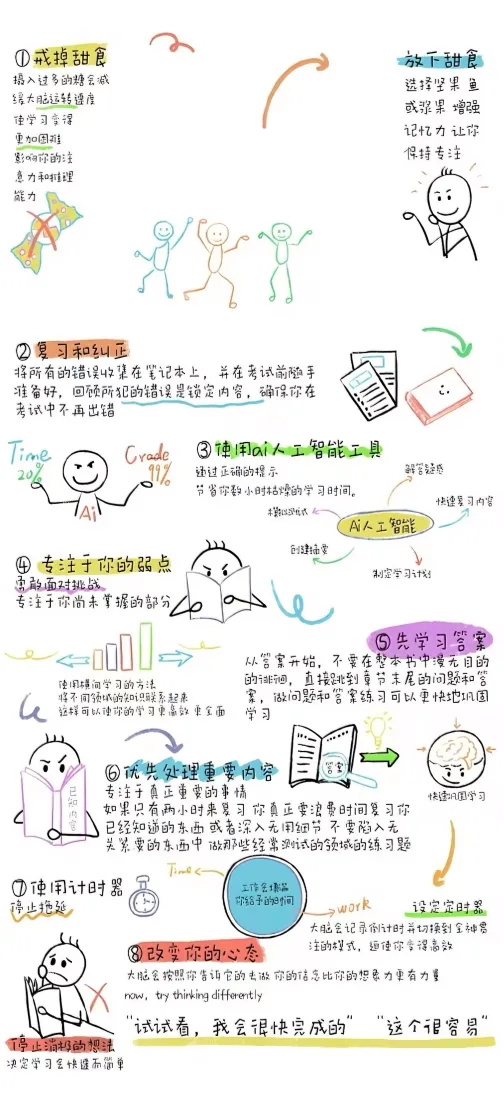 ① 戒掉甜食
摄入过多的糖会减
缓大脑运转速度
使学习变得
更加困难
影响你的注
意力和推理
能力
放下甜食
选择坚果 鱼
或浆果 增强
记忆力 让你
保持专注
② 复习和纠正
将所有的错误收集在笔记本上，并在考试前随手
准备好，回顾所犯的错误是锁定内容，确保你在
考试中不再出错
Time
20%
Grade
99%
Ai
③ 使用ai人工智能工具
通过正确的提示
节省你数小时枯燥的学习时间。
解答疑惑
模拟测试
快速复习内容
Ai人工智能
创建摘要
制定学习计划
④ 专注于你的弱点
勇敢面对挑战
专注于你尚未掌握的部分
⑤ 先学习答案
从答案开始，不要在整本书中漫无目的
的徘徊，直接跳到章节末尾的问题和答
案，做问题和答案练习可以更快地巩固
学习
使用横向学习的方法
将不同领域的知识联系起来
这样可以使你的学习更高效 更全面
答案
快速巩固学习
已知内容
⑥ 优先处理重要内容
专注于真正重要的事情
如果只有两小时来复习 你真正要浪费时间复习你
已经知道的东西 或者深入无用细节 不要陷入无
头紧要的东西中 做那些经常测试的领域的练习题
⑦ 使用计时器
停止拖延
Time
工作会填满
你给予的时间
work
设定定时器
大脑会记录倒计时并切换到全神贯
注的模式，迫使你变得高效
⑧ 改变你的心态
大脑会按照你告诉它的去做 你的信念比你的想象力更有力量
now, try thinking differently
"试试看，我会很快完成的" "这个很容易"
停止消极的想法
决定学习会快速而简单